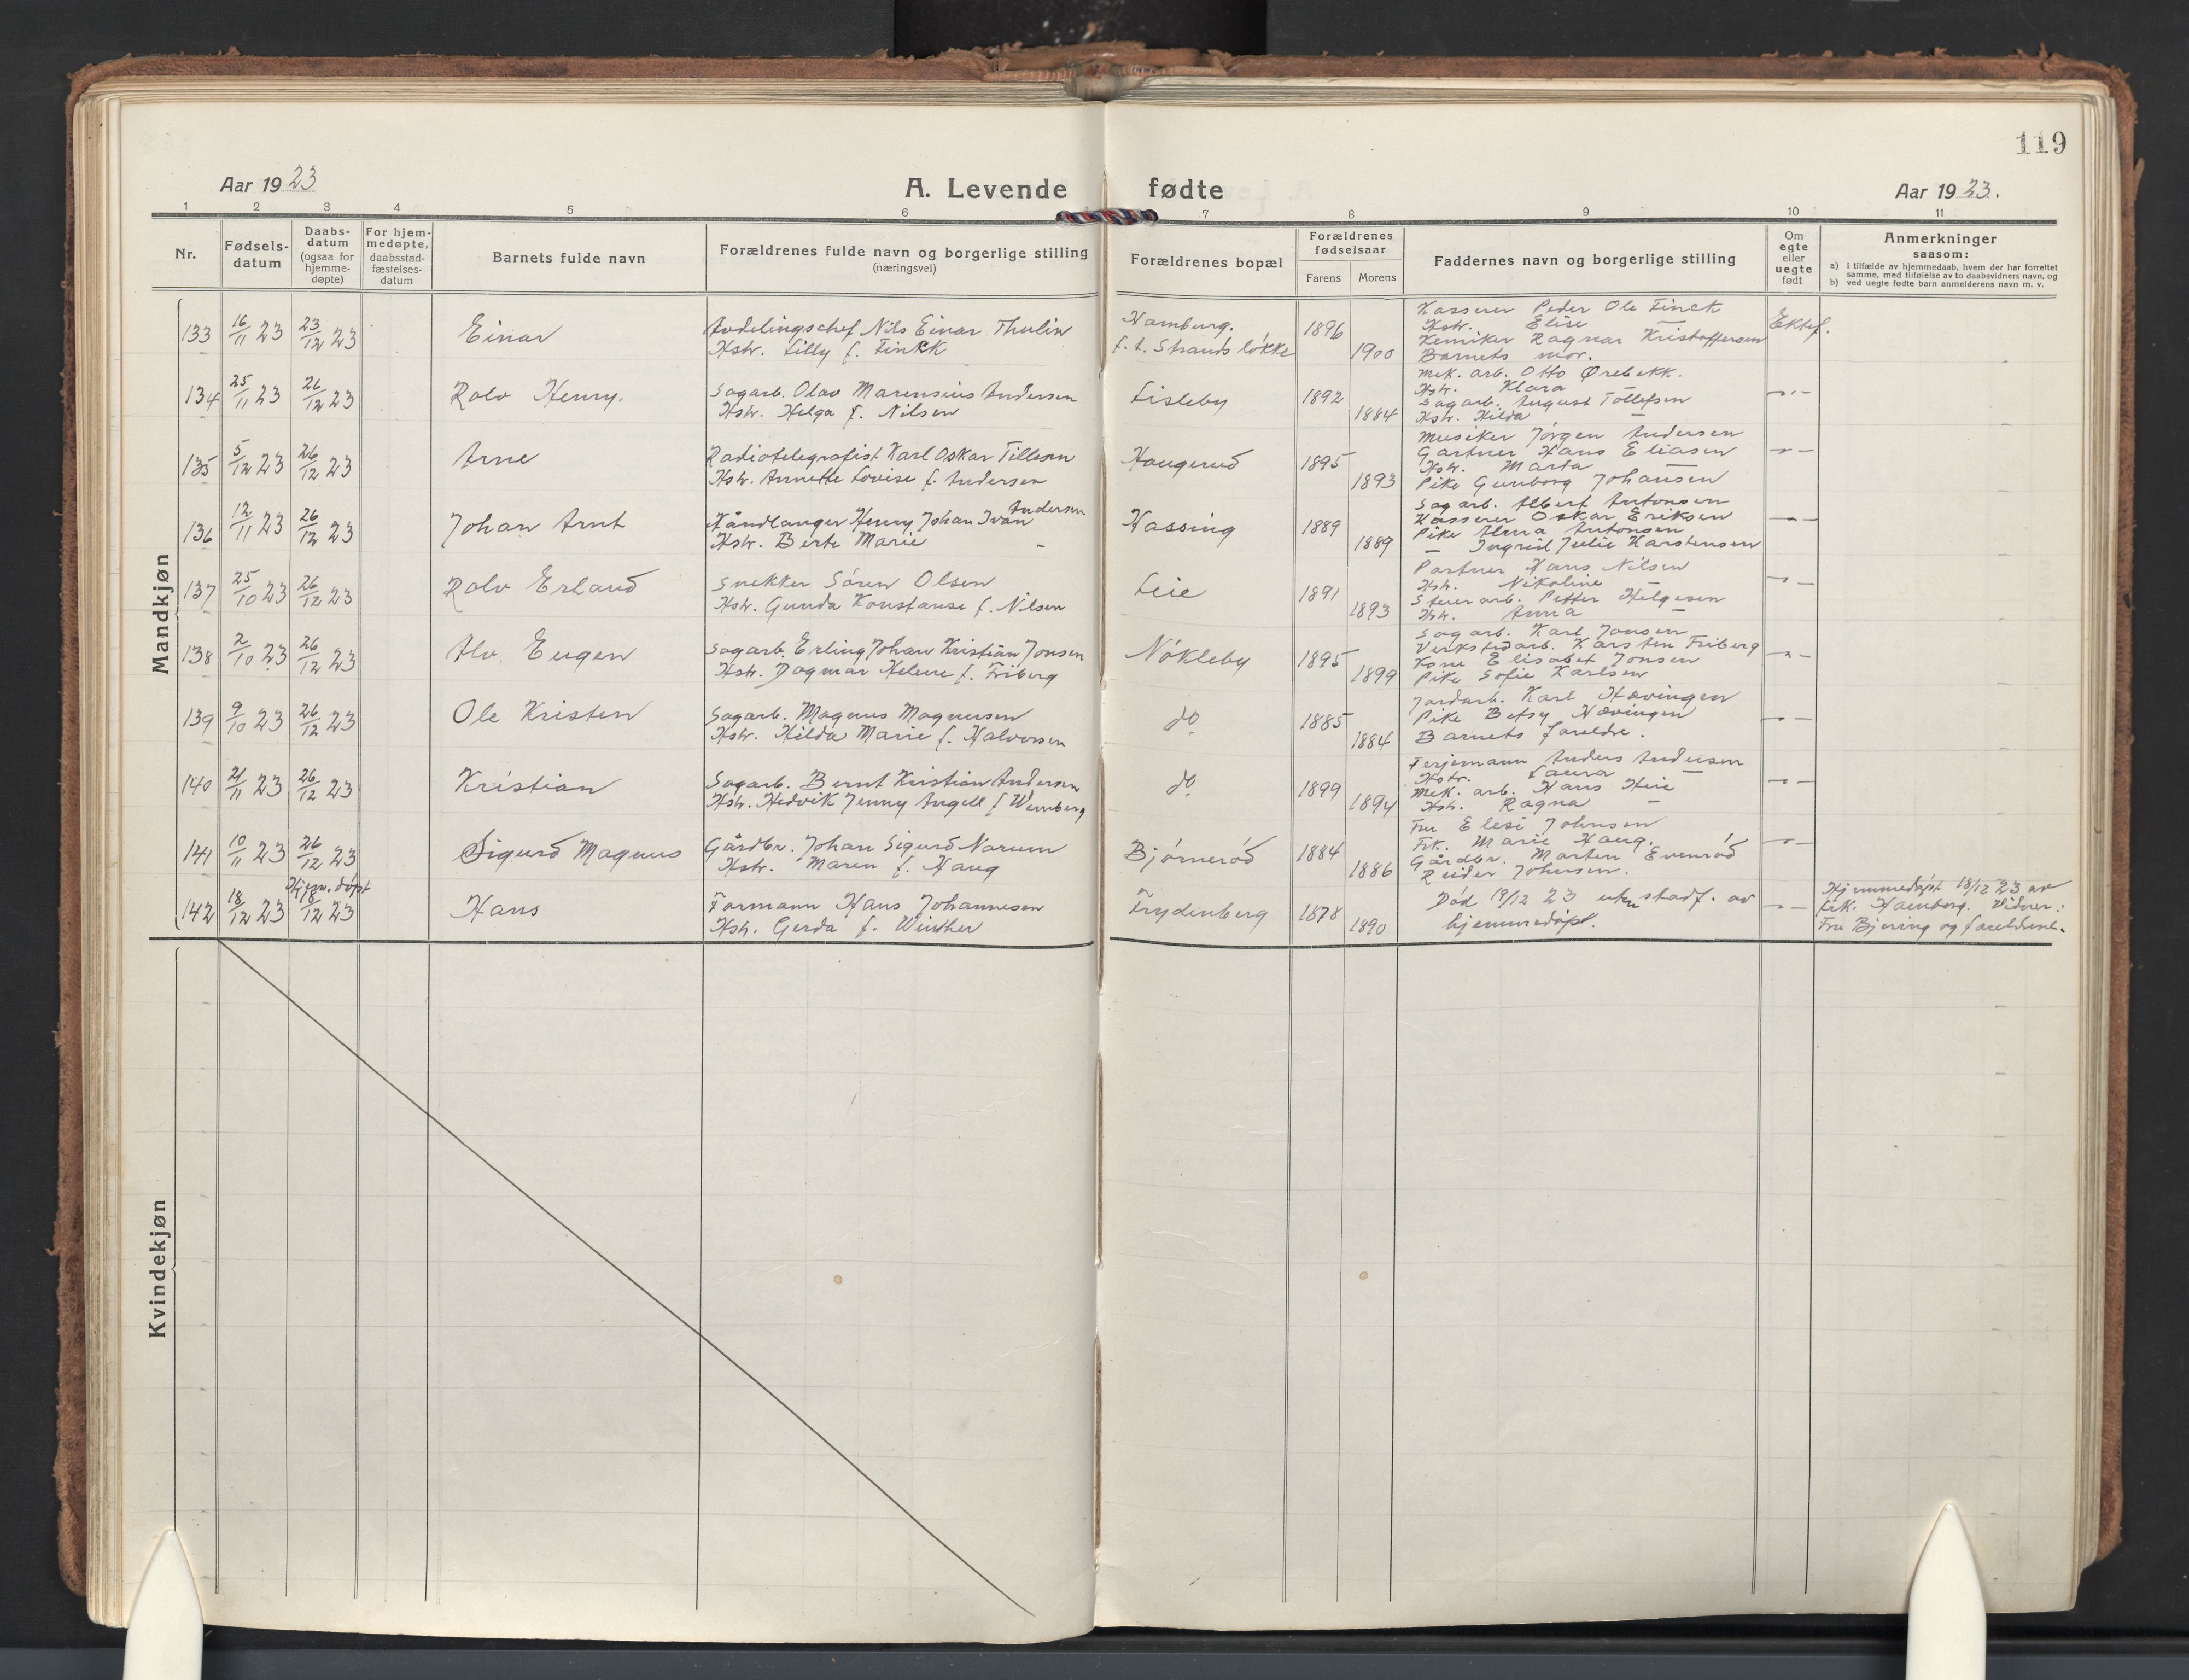 119
Aar 1923
A. Levende fødte
Aar 1923.
1 2 3 4 5 6 7 8 9 10 11
Nr.
Fødsels-
datum
Daabs-
datum
(ogsaa for
hjemme-
døpte)
For hjem-
medøpte,
daabsstad-
fæstelses-
datum
Barnets fulde navn
Forældrenes fulde navn og borgerlige stilling
(næringsvei)
Forældrenes bopæl
Forældrenes
fødselsaar
Farens Morens
Faddernes navn og borgerlige stilling
Om
egte
eller
uegte
født
Anmerkninger
saasom:
a) i tilfælde av hjemmedaab, hvem der har forrettet
samme, med tilføielse av to daabsvidners navn, og
b) ved uegte fødte barn anmelderens navn m. v.
Mandkjøn
133 16/11 23 23/12 23 Einar
Avdelingschef Nils Einar Thulin
Hstr. Lilly f. Finck
Hamburg.
f. t. Strands løkke
1896 1900
Kasserer Peder Ole Finck
Hstr. Elise —
Kemiker Ragnar Kristoffersen
Barnets mor.
Ektef.
134 25/11 23 26/12 23 Rolv Henry.
Sagarb. Olav Marensius Andersen
Hstr. Helga f. Nilsen
Lisleby
1892 1884
Mek. arb. Otto Ørebekk.
Hstr. Klara
Sagarb. August Tollefsen
Hstr. Hilda —
—"—
135 5/12 23 26/12 23 Arne
Radiotelegrafist Karl Oskar Tillesen
Hstr. Annette Lovise f. Andersen
Haugerud
1895 1893
Musiker Jørgen Andersen
Gartner Hans Eliasen
Hstr. Marta —
Pike Gunborg Johansen
—"—
136 12/11 23 26/12 23 Johan Arnt
Håndlanger Henry Johan Ivan Andersen
Hstr. Berte Marie —
Hassing
1889 1889
Sagarb. Albert Antonsen
Kasserer Oskar Eriksen
Pike Alma Antonsen
— Ingrid Julie Karstensen
—"—
137 25/10 23 26/12 23 Rolv Erland
Snekker Søren Olsen
Hstr. Gunda Konstanse f. Nilsen
Leie
1891 1893
Portner Hans Nilsen
Hstr. Nikoline —
Stenarb. Petter Helgesen
Hstr. Anna —
—"—
138 2/10 23 26/12 23 Alv Eugen
Sagarb. Erling Johan Kristian Jonsen
Hstr. Dagmar Helene f. Friberg
Nøkleby
1895 1899
Sagarb. Karl Jonsen
Verkstedarb. Karsten Friberg
Kone Elisabet Jonsen
Pike Sofie Karlsen
—"—
139 9/10 23 26/12 23 Ole Kristen
Sagarb. Magnus Magnusen
Hstr. Hilda Marie f. Halvorsen
do
1885 1884
Jordarb. Karl Hævingen
Pike Betsy Hævingen
Barnets foreldre.
—"—
140 21/11 23 26/12 23 Kristian
Sagarb. Bernt Kristian Andersen
Hstr. Hedvik Jenny Angell f. Wernberg
do
1899 1894
Ferjemann Anders Andersen
Hstr. Laura —
Mek. arb. Hans Heie
Hstr. Ragna —
—"—
141 10/11 23 26/12 23 Sigurd Magnus
Gårdbr. Johan Sigurd Narum
Hstr. Maren f. Haug
Bjørnerød
1884 1886
Fru Elesi Johnsen
Frk. Marie Haug.
Gårdbr. Marten Evenrød
Reider Johnsen.
—"—
Hjem. døpt
142 18/12 23 18/12 23 Hans
Formann Hans Johannesen
Hstr. Gerda f. Winther
Frydenberg
1878 1890
Død 19/12 23 uten stadf. av
hjemmedåpt.
—"—
Hjemmedøpt 18/12 23 av
frk. Vidner:
Fru Bjering og foreldrene.
Kvindekjøn